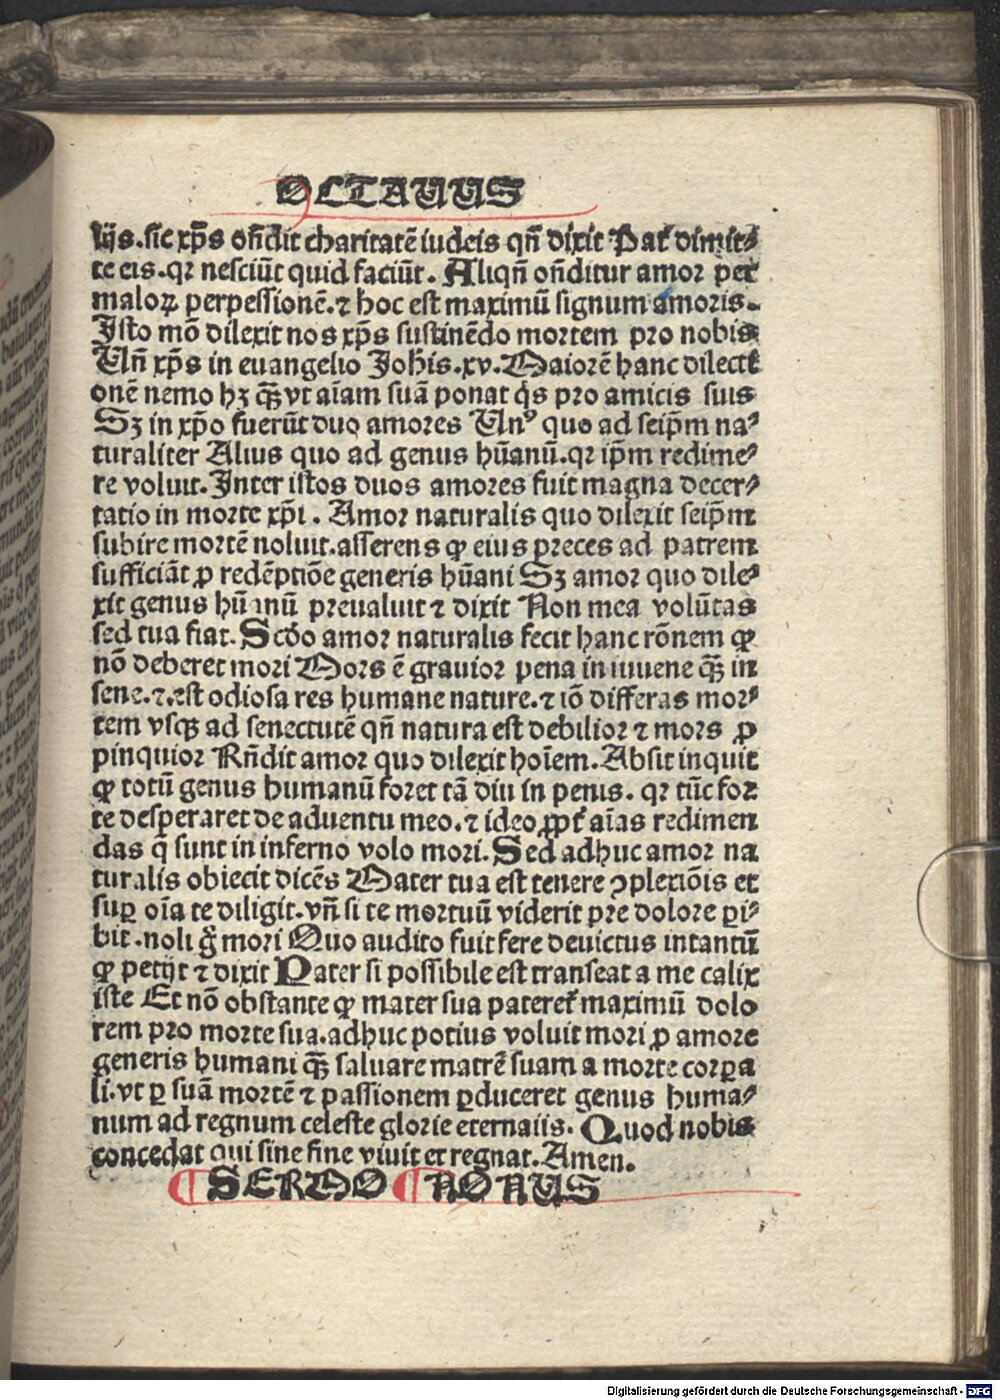 OCTAUUS
ijs. sic xp̄s on̄dit charitatē iudeis qn̄ dixit Pat̄ dimit⸗
te eis. qꝛ nesciūt quid faciūt. Aliqn̄ on̄ditur amor per
maloꝝ perpessionē. ⁊ hoc est maximū signum amoris.
Isto mō dilexit nos xp̄s sustinēdo mortem pro nobis
Un̄ xp̄s in euangelio Joh̄is. xv. Maiorē hanc dilecti
onē nemo hꝫ qꝫ̄ vt aīam suā ponat q̄s pro amicis suis
Sꝫ in xp̄o fuerūt duo amores Unꝰ quo ad seip̄m na⸗
turaliter Alius quo ad genus hūanū. qꝛ ip̄m redime⸗
re voluit. Inter istos duos amores fuit magna decer⸗
tatio in morte xp̄i. Amor naturalis quo dilexit seip̄m
subire mortē noluit. asserens ꝙ eius preces ad patrem
sufficiāt ꝓ redēptiōe generis hūani Sꝫ amor quo dile⸗
xit genus hūanū preualuit ⁊ dixit Non mea volūtas
sed tua fiat. Scḋo amor naturalis fecit hanc rōnem ꝙ
nō deberet mori Mors ē grauior pena in iuuene qꝫ̄ in
sene. ⁊. est odiosa res humane nature. ⁊ iō differas mor⸗
tem vsqꝫ ad senectutē qn̄ natura est debilior ⁊ mors ꝓ
pinquior Rn̄dit amor quo dilexit hoīem. Absit inquit
ꝙ totū genus humanū foret tā diu in penis. qꝛ tūc for
te desperaret de aduentu meo. ⁊ ideo ꝓpt̄ aīas redimen
das q̄ sunt in inferno volo mori. Sed adhuc amor na
turalis obiecit dicēs Mater tua est tenere ꝯplexiōis et
suꝑ oīa te diligit. vn̄ si te mortuū viderit pre dolore ꝑi⸗
bit. noli g̊ mori Quo audito fuit fere deuictus intantū
ꝙ petijt ⁊ dixit Pater si possibile est transeat a me calix
iste Et nō obstante ꝙ mater sua pateret̄ maximū dolo
rem pro morte sua. adhuc potius voluit mori ꝓ amore
generis humani qꝫ̄ saluare matrē suam a morte corꝑa
li. vt ꝑ suā mortē ⁊ passionem ꝑduceret genus huma⸗
num ad regnum celeste glorie eternalis. Quod nobis
concedat qui sine fine viuit et regnat. Amen.
SERMO NONUS
Digitalisierung gefördert durch die Deutsche Forschungsgemeinschaft - DFG